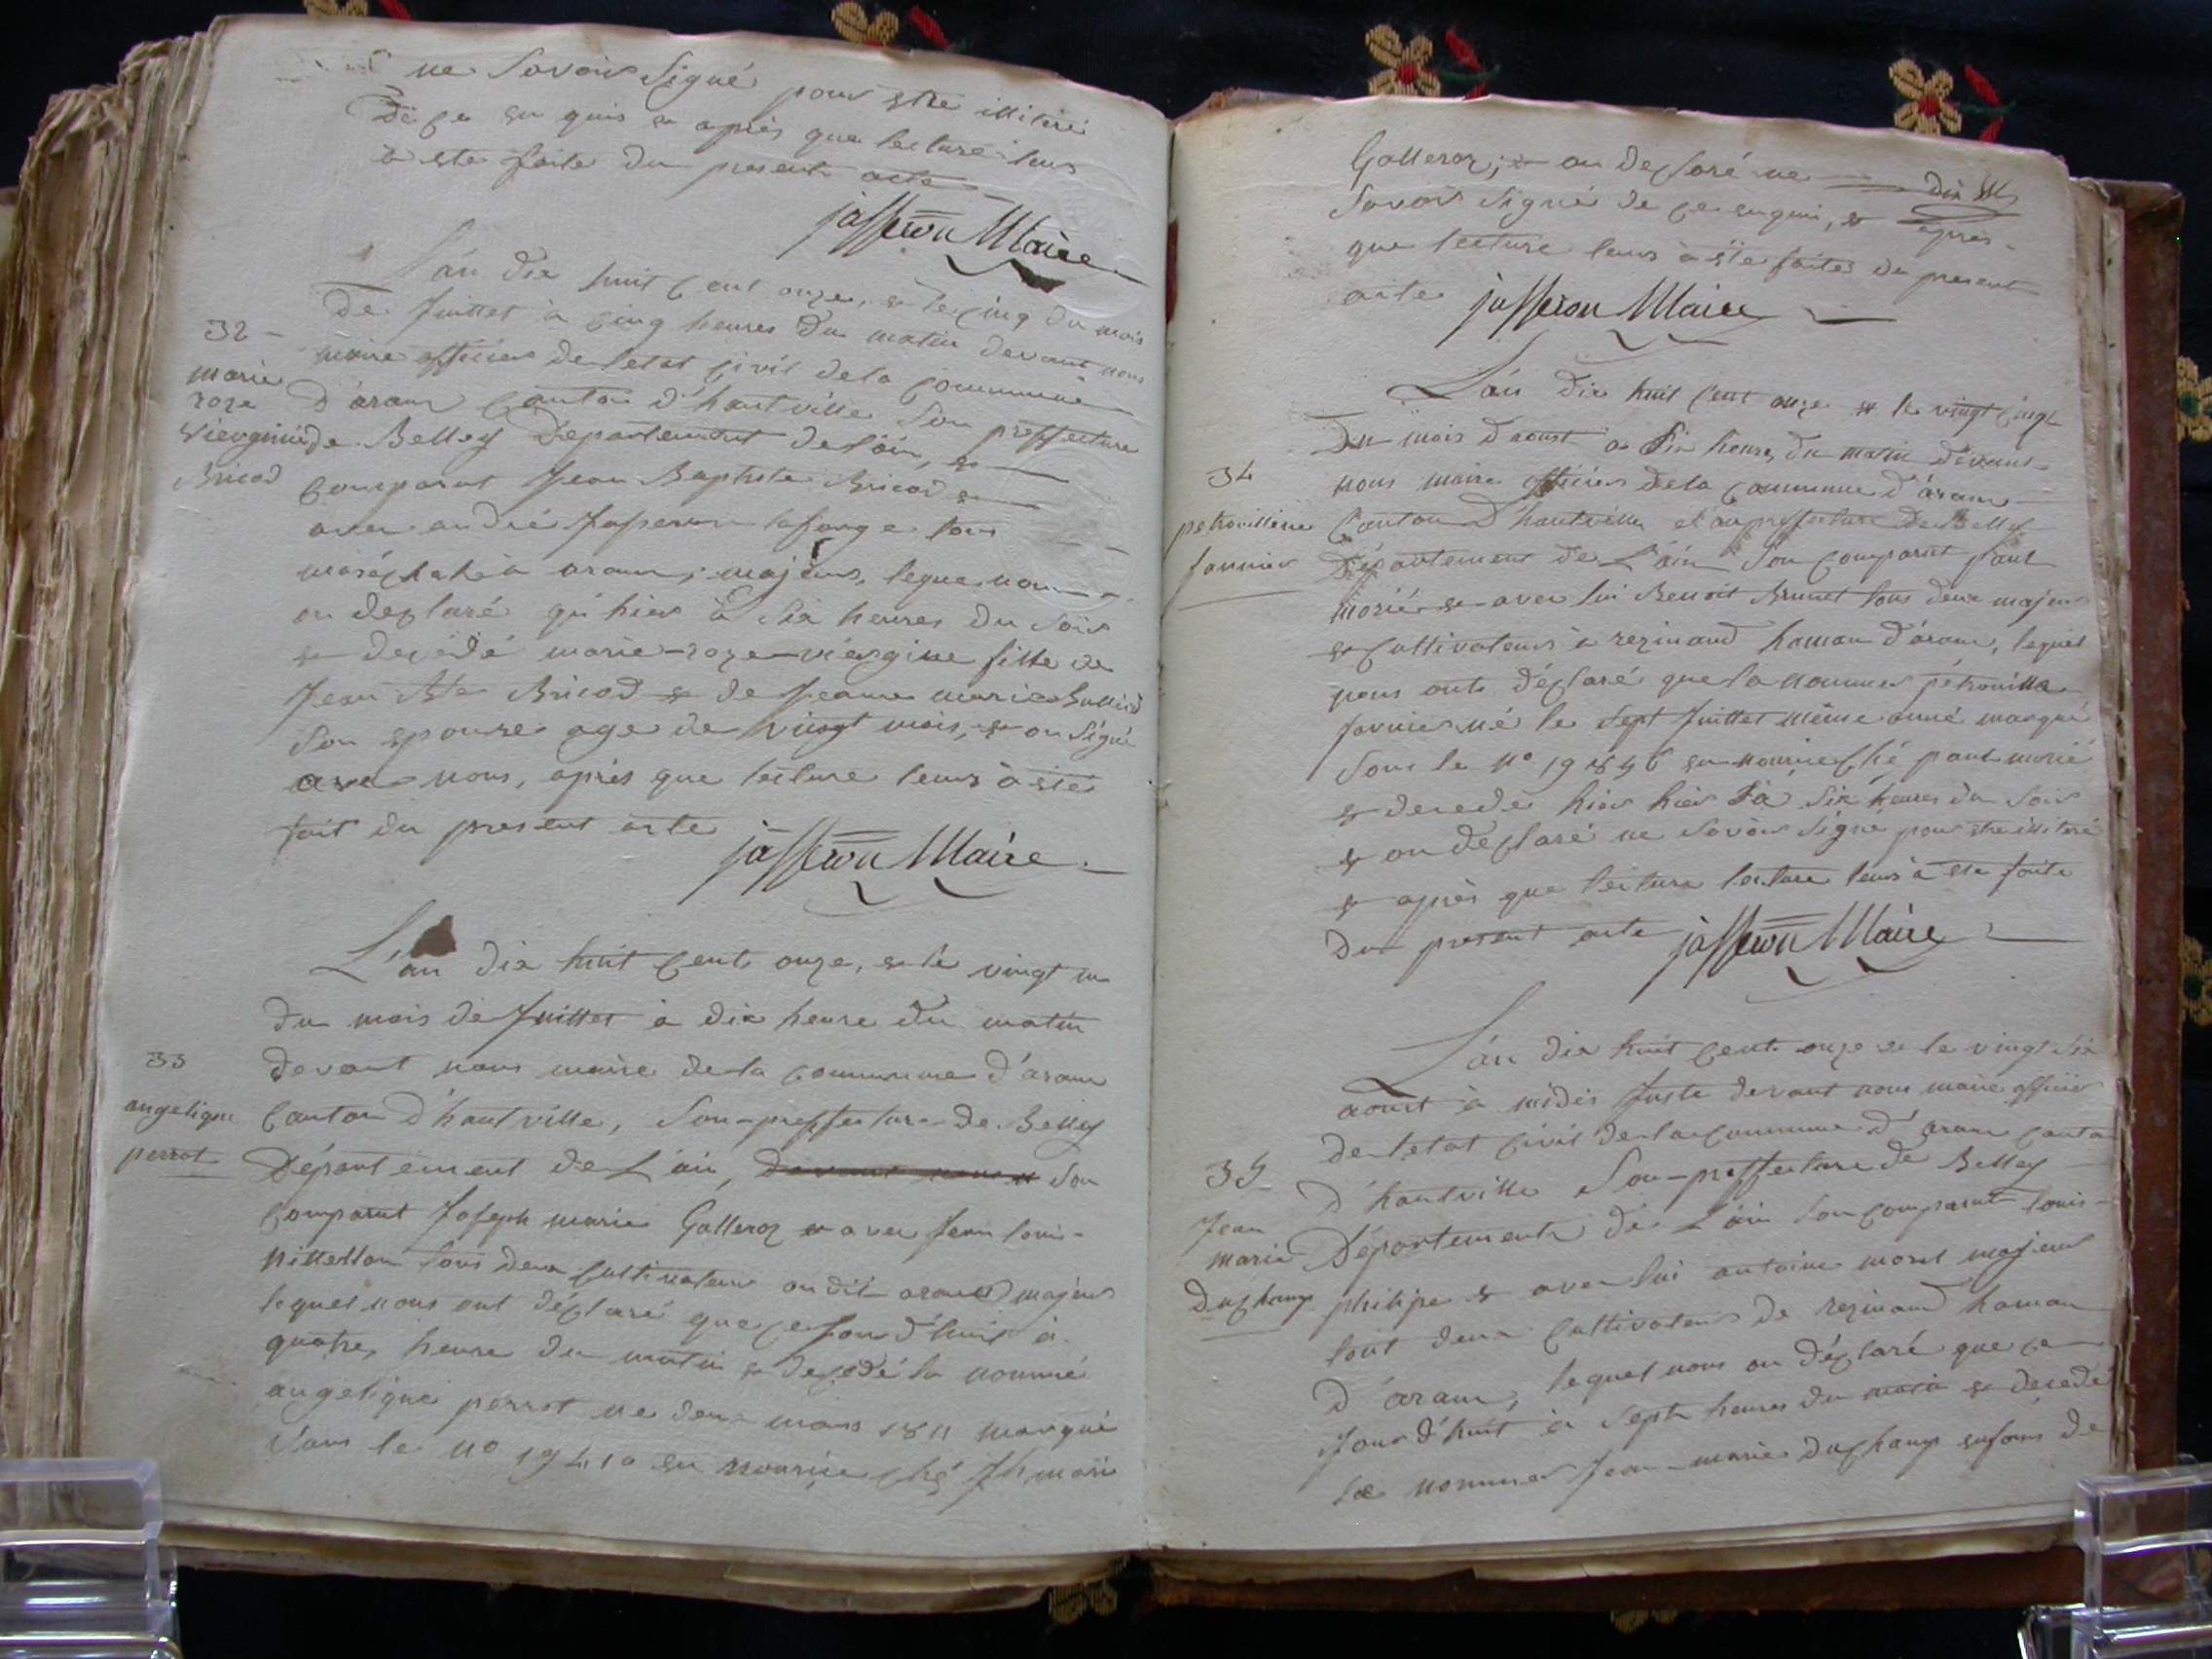 ne Savoir Signé pour stre illiteré
De ce en quis & après que lecture leur
à ste faite du present acte
jasseron Maire
L'an dix huit cent onze, & le cinq du mois
de Juillet à cinq heures du matin devant nous
maire officier de letat civil de la commune
32 -
marie
roze
vierginie
Bricod
D'aran canton d'hautville Son preffecture
de Belley Departement de l'ain, &
comparut Jean Baptiste Bricod &
avec andré Jasseron lafarge tous
maréchal à aran, majeurs, leque nous
on declaré qu'hier à Six heures du Soir
& decédé marie-roze-viergine fille de
Jean Bte Bricod & de Jeanne marie
Son epouze age de vingt mois, & on Signé
avec nous, après que lecture leurs à sté
fait du present acte
jasseron Maire
L'an dix huit cent onze, & le vingt un
du mois de Juillet à dix heure du matin
33
angelique
perrot
devant nous maire de la commune d'aran
Canton d'hautville, Sou-preffecture de Belley
Département de L'ain, devant nous Son
comparut Joseph marie Galleroz & avec Jean louis
tous deux cultivateur audit aran majeurs
lequel nous ont déclaré que ce jourd'huit à
quatre heure du matin & decedé la nommé
angelique perrot ne deux mars 1811 marqué
Sous le no 19410 en nourice ché Jh marie
Galleroz; & on declaré ne
Savoir Signé de ce enquis, & après
que lecture leurs à ste faites du present
acte jasseron Maire
L'an dix huit cent onze & le vingt cinq
Du mois D'aoust à Six heures du matin devant
34
petrouillene
fournier
nous maire officiers de la commune d'aran
Canton D'hautville et Soupreffecture de Belley
Département de L'ain Son comparut paul
morié & avec lui Benoit Brunet tous deux majeurs
& cultivateurs à rezinand hamau d'aran, lequel
nous ont déclaré que la nommée pétrouille
fournier né le Sept Juillet même anné marqué
Sous le No 19856 en nourice ché paul morié
& decedé hier hier à Six heures du Soir
& on declaré ne Savoir Signé pour stre illiteré
& après que lecture lecture leurs à ste faite
Du present acte jasseron Maire
L'an dix huit cent onze & le vingt Six
aoust à midis Juste devant nous maire officier
de l'etat civil de la commune D'aran canton
35
Jean
marie
Duchamp
D'hautville Sou-preffecture de Belley
Département de L'ain Son comparut louis
philipe & avec lui antoine morel majeurs
tout deux cultivateurs de rezinand hamau
D'aran, lequel nous on déclaré que ce
Jour d'huit à Sept heures du matin & decedé
le nommer Jean-marie Duchamp enfans de